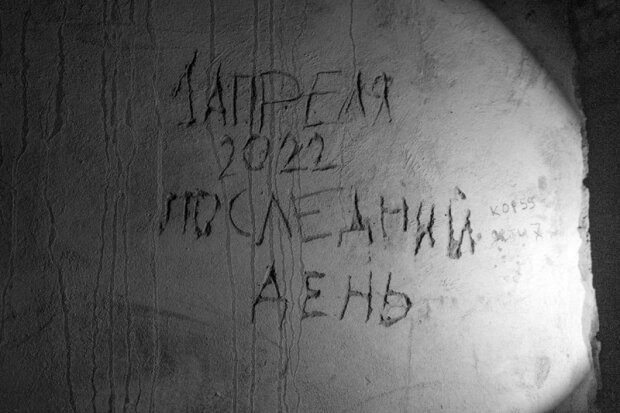 1 АПРЕЛЯ
2022
ПОСЛЕДНИЙ
ДЕНЬ